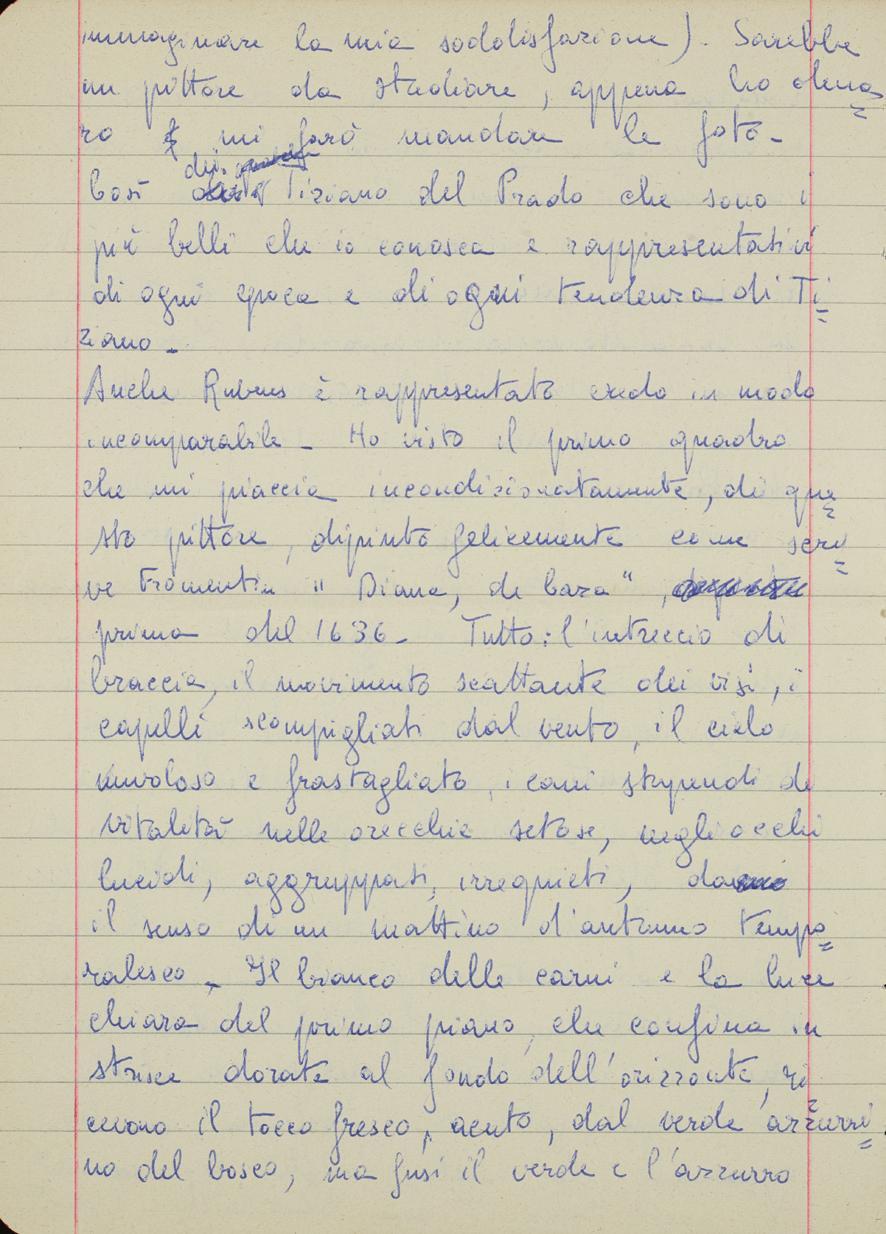 immaginare la mia soddisfazione). Sarebbe
un pittore da studiare, appena ho dena=
ro mi farò mandare le foto-
Così dei Tiziano del Prado che sono i
più belli che io conosca e rappresentativi
di ogni epoca e di ogni tendenza di Ti=
ziano-
Anche Rubens è rappresentato credo in modo
incomparabile- Ho visto il primo quadro
che mi piaccia incondizionatamente, di que=
sto pittore, dipinto felicemente come scri=
ve Fromentin "Diana, de
prima del 1636- Tutto: l'intreccio di
braccia, il movimento scattante dei visi, i
capelli scompigliati dal vento, il cielo
nuvoloso e frastagliato, i cani stupendi di
vitalità nelle orecchie setose, negli occhi
lucidi, aggruppati, irrequieti,
il senso di un mattino d'autunno tempo=
ralesco- Il bianco delle carni e la luce
chiara del primo piano, che confina in
strisce dorate al fondo dell'orizzonte, ri=
cevono il tocco fresco, acuto, dal verde azzurri=
no del bosco, ma fusi il verde e l'azzurro